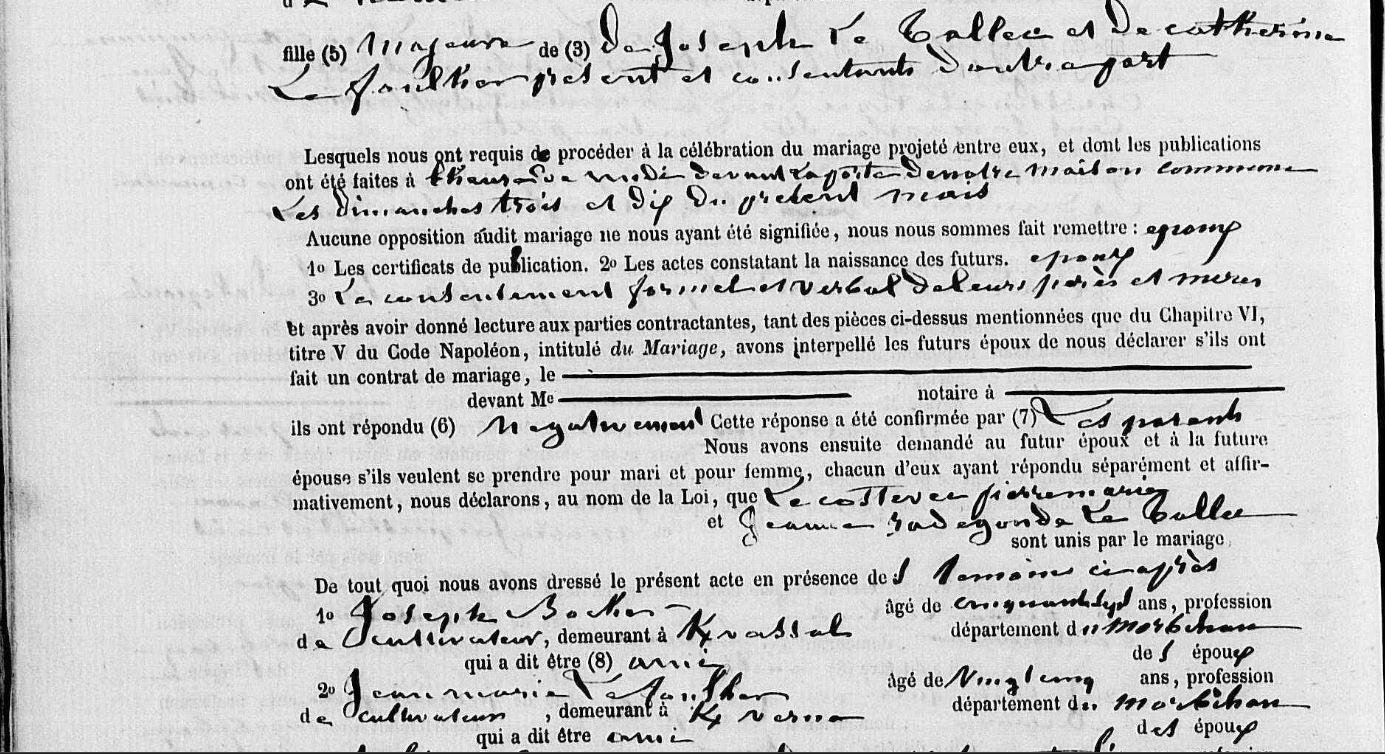 fille (5) Majeure de (3) de Joseph Le Tallec et De catherine
Le foulher present et consentants D'outre part
Lesquels nous ont requis de procéder à la célébration du mariage projeté entre eux, et dont les publications
ont été faites à l'heure de midi devant la porte De notre maison commune
Les dimanches trois et dix du présent mois
Aucune opposition audit mariage ne nous ayant été signifiée, nous nous sommes fait remettre : epoux
1o Les certificats de publication. 2o Les actes constatant la naissance des futurs. epoux
3o Le consentement formel et verbal de leurs pères et mères
et après avoir donné lecture aux parties contractantes, tant des pièces ci-dessus mentionnées que du Chapitre VI,
titre V du Code Napoléon, intitulé du Mariage, avons interpellé les futurs époux de nous déclarer s'ils ont
fait un contrat de mariage, le
devant Me notaire à
ils ont répondu (6) negativement Cette réponse a été confirmée par (7) Les parents
Nous avons ensuite demandé au futur époux et à la future
épouse s'ils veulent se prendre pour mari et pour femme, chacun d'eux ayant répondu séparément et affir-
mativement, nous déclarons, au nom de la Loi, que Le costevec pierre marie
et Jeanne radegonde Le Tallec
sont unis par le mariage,
De tout quoi nous avons dressé le présent acte en présence des temoins ci après
1o Joseph Bocher âgé de cinquante sept ans, profession
de cultivateur, demeurant à Kvassal département du morbihan
qui a dit être (8) ami des époux
2o Jean marie Le foulher âgé de Vingt cinq ans, profession
de cultivateur, demeurant à K verno département du morbihan
qui a dit être ami des époux